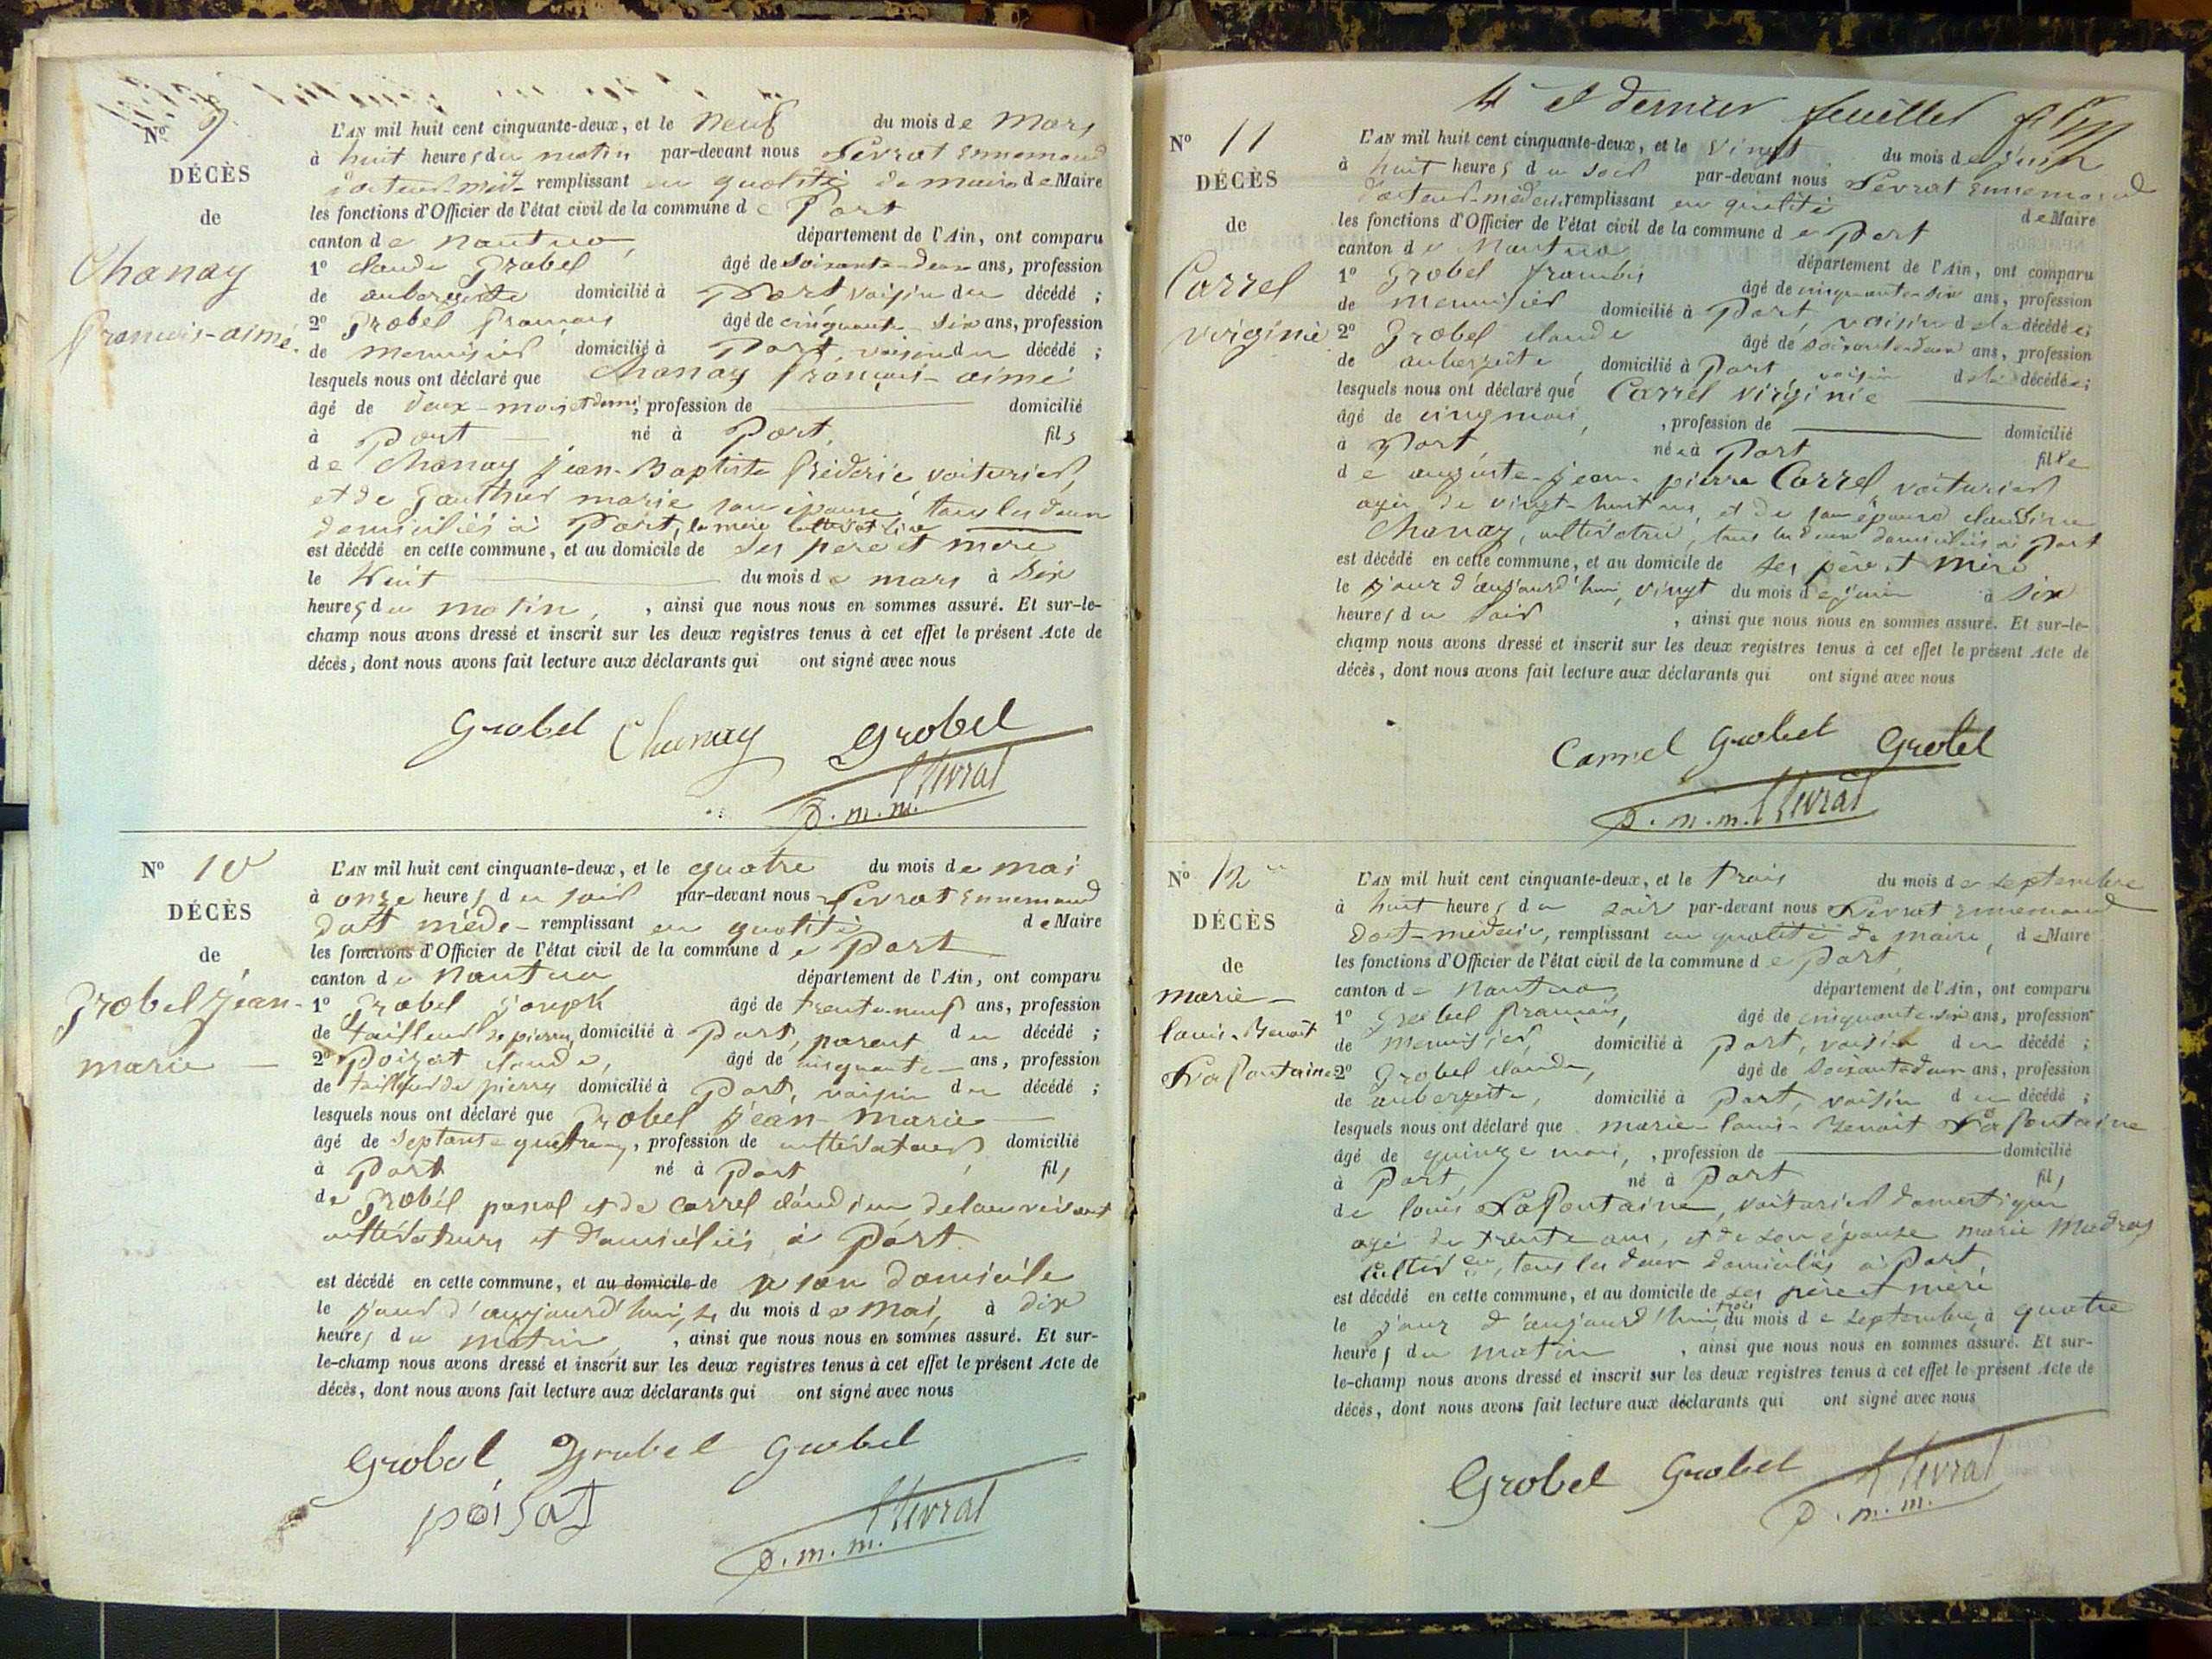 N° 9
DÉCÈS
de
Chanay
François-aimé.
L'AN mil huit cent cinquante-deux, et le neuf du mois de mars
à huit heures du matin par-devant nous Sevrat Ennemond
docteur méd- remplissant en qualité de maire de Maire
les fonctions d'Officier de l'état civil de la commune de Port
canton de Nantua, département de l'Ain, ont comparu
1° claude Grobel âgé de soixante-deux ans, profession
de aubergiste domicilié à Port, voisin du décédé ;
2° Grobel François âgé de cinquante-six ans, profession
de menuisier domicilié à Port, voisin du décédé ;
lesquels nous ont déclaré que Chanay françois-aimé
âgé de deux-mois et demi, profession de domicilié
à Port né à Port, fils
de Chanay jean-Baptiste fréderic, voiturier,
et de Gauthier marie son épouse, tous les deux
domiciliés à Port, la mère cultivatrice
est décédé en cette commune, et au domicile de ses pere et mere
le huit du mois de mars à six
heures du matin, , ainsi que nous nous en sommes assuré. Et sur-le-
champ nous avons dressé et inscrit sur les deux registres tenus à cet effet le présent Acte de
décès, dont nous avons fait lecture aux déclarants qui ont signé avec nous
Grobel Chanay Grobel
Sevrat
D. m. m.
N° 10
DÉCÈS
de
Grobel jean-
marie
L'AN mil huit cent cinquante-deux, et le quatre du mois de mai
à onze heures du soir par-devant nous Sevrat Ennemond
doct méde- remplissant en qualité de Maire
les fonctions d'Officier de l'état civil de la commune de Port
canton de Nantua département de l'Ain, ont comparu
1° Grobel joseph âgé de trente-neuf ans, profession
de tailleur de pierres, domicilié à Port, parent du décédé ;
2° Poizat claude, âgé de cinquante ans, profession
de tailleur de pierres domicilié à Port, voisin du décédé ;
lesquels nous ont déclaré que Grobel jean-marie
âgé de septante quatre ans, profession de cultivateur domicilié
à Port né à Port, fils
de Grobel pascal et de Carrel claudine de leur vivant
cultivateurs et domiciliés à Port.
est décédé en cette commune, et au domicile de à son domicile
le jour d'aujourd'hui, 4 du mois de mai, à dix
heures du matin, , ainsi que nous nous en sommes assuré. Et sur-
le-champ nous avons dressé et inscrit sur les deux registres tenus à cet effet le présent Acte de
décès, dont nous avons fait lecture aux déclarants qui ont signé avec nous
Grobel Grobel Grobel
poisat
Sevrat
D. m. m.
4e et dernier feuillet
N° 11
DÉCÈS
de
Carrel
virginie
L'AN mil huit cent cinquante-deux, et le vingt du mois de juin
à huit heures du soir par-devant nous Sevrat Ennemond
docteur-médecin, remplissant en qualité de Maire
les fonctions d'Officier de l'état civil de la commune de Port
canton de Nantua département de l'Ain, ont comparu
1° Grobel françois âgé de cinquante-six ans, profession
de menuisier domicilié à Port, voisin de la décédée;
2° Grobel claude âgé de soixante-deux ans, profession
de aubergiste, domicilié à Port, voisin de la décédée;
lesquels nous ont déclaré que Carrel virginie
âgé de cinq mois, , profession de domicilié
à Port, née à Port fille
de auguste-jean-pierre Carrel, voiturier
agée de vingt-huit ans, et de son épouse claudine
Chanay, cultivatrice, tous les deux domiciliés à Port
est décédé en cette commune, et au domicile de ses père et mère
le jour d'aujourd'hui, vingt du mois de juin à six
heures du soir , ainsi que nous nous en sommes assuré. Et sur-le-
champ nous avons dressé et inscrit sur les deux registres tenus à cet effet le présent Acte de
décès, dont nous avons fait lecture aux déclarants qui ont signé avec nous
Carrel Grobel Grobel
D. m. m. Sevrat
N° 12
DÉCÈS
de
marie-
louis-Benoit
Lafontaine
L'AN mil huit cent cinquante-deux, et le trois du mois de septembre
à huit heures du soir par-devant nous Sevrat Ennemond
doct-médecin, remplissant en qualité de maire, de Maire
les fonctions d'Officier de l'état civil de la commune de Port,
canton de Nantua, département de l'Ain, ont comparu
1° Grobel François, âgé de cinquante-six ans, profession
de menuisier, domicilié à Port, voisin du décédé ;
2° Grobel claude, âgé de soixante-deux ans, profession
de aubergiste, domicilié à Port, voisin du décédé ;
lesquels nous ont déclaré que marie-louis-Benoit Lafontaine
âgé de quinze mois, , profession de domicilié
à Port, né à Port fils
de louis Lafontaine, voiturier domestique
agé de trente ans, et de son épouse marie Mudry
cultivce, tous les deux domiciliés à Port,
est décédé en cette commune, et au domicile de ses père et mère
le jour d'aujourd'hui, trois du mois de septembre, à quatre
heures du matin , ainsi que nous nous en sommes assuré. Et sur-
le-champ nous avons dressé et inscrit sur les deux registres tenus à cet effet le présent Acte de
décès, dont nous avons fait lecture aux déclarants qui ont signé avec nous
Grobel Grobel Sevrat
D. m. m.